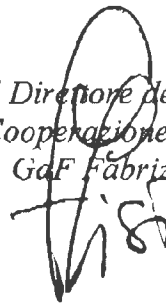 Direttore de
Cooperazione
GdF Fabriz